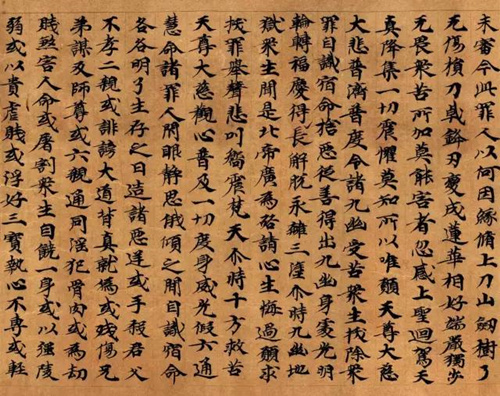 未審今此罪人以何因緣脩上刀山劒樹了
无傷損刀戟鋒刃變成蓮華相好端嚴獨步
无喪衆苦所加莫能害者忽感上聖迴駕天
真降集一切震懼莫知所以唯願天尊大慈
大悲普濟普度今諸九幽受苦衆生拔除衆
罪自識宿命捨惡從善得出九幽身受光明
輪轉福慶得長解脫永離三塗尒時九幽地
獄衆生聞是北帝廣爲啓請心生悔過願求
拔罪舉聲悲叫嚮震梵天尒時十方救苦
天尊大慈觀心普及一切度身威光假六通
慧命諸罪人閇眼靜思俄傾之閒自識宿命
各各明了生存之日造諸惡逆或手殺君父
不孝二親或誹謗大道背真就僞或殘傷兄
弟謀及師尊或六親通同淫犯骨肉或爲劫
賊煞害人命或屠割衆生自饒一身或以强陵
弱或以貴虐賤或浮好三寶執心不專或輕